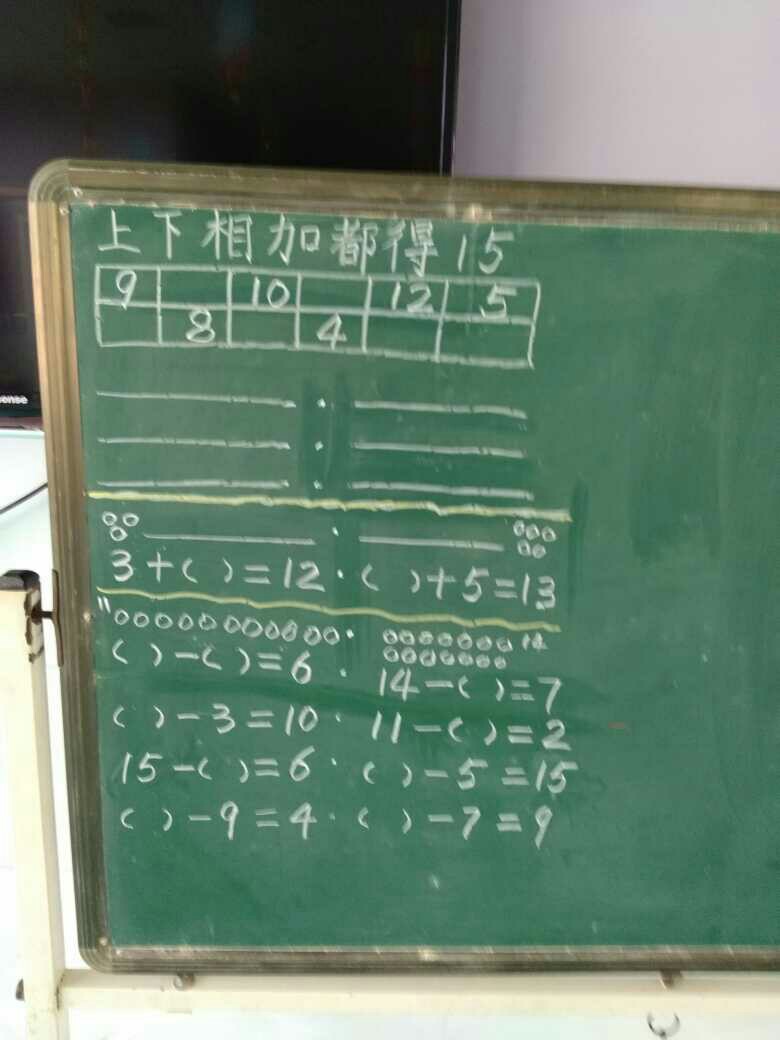 上下相加都得15
9 10 12 5
8 4
3+( )=12 · ( )+5=13
11 14
( )-( )=6 · 14-( )=7
( )-3=10 · 11-( )=2
15-( )=6 · ( )-5=15
( )-9=4 · ( )-7=9